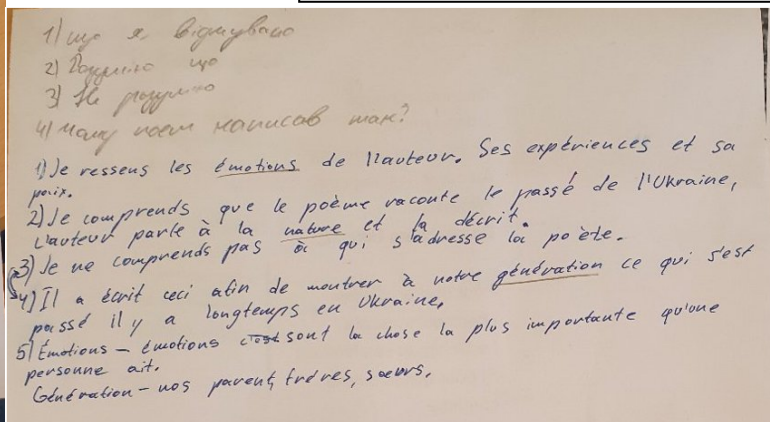 1) що я відчуваю
2) Розумію що
3) Не розумію
4) Чому поет написав так?
1) Je ressens les émotions de l'auteur. Ses expériences et sa
paix.
2) Je comprends que le poème raconte le passé de l'Ukraine,
L'auteur parle à la nature et la décrit.
3) Je ne comprends pas à qui s'adresse la poète.
4) Il a écrit ceci afin de montrer à notre génération ce qui s'est
passé il y a longtemps en Ukraine.
5) Émotions – émotions c'est sont la chose la plus importante qu'une
personne ait.
Génération – nos parent, frères, sœurs.